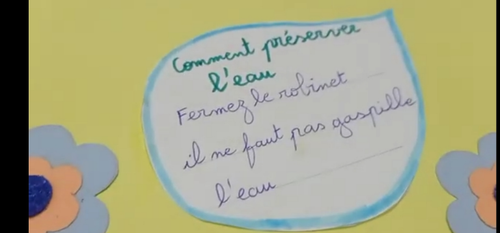 Comment préserver
l'eau
Fermez le robinet
il ne faut pas gaspille
l'eau